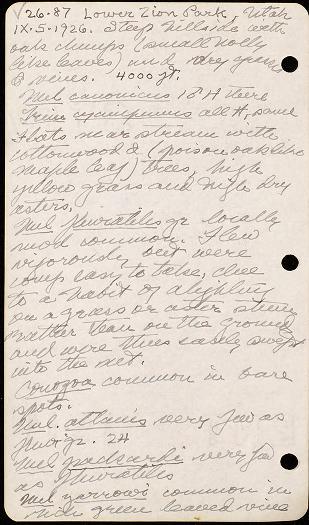 26-87 Lower Zion Park, Utah
IX-5-1926. Steep hillside with
oak clumps (small holly
like leaves) and dry grass
& vines. 4000 ft.
Mel canonicus 1♂ H there
cyanipennis all H, same
flats near stream with
cottonwood & (poison oak like
maple leaf) trees, high
yellow grass and high dry
asters.
Mel. gr locally
most common. Flew
vigorously, but were
comp easy to take, due
to a habit of alighting
on a grass or aster stem
rather than on the ground
and were thus easily swept
into the net.
Conozoa common in bare
spots.
Mel. very few as
gr. 24
Mel packardi very few
as
Mel yarrowi common in
green leaved vine